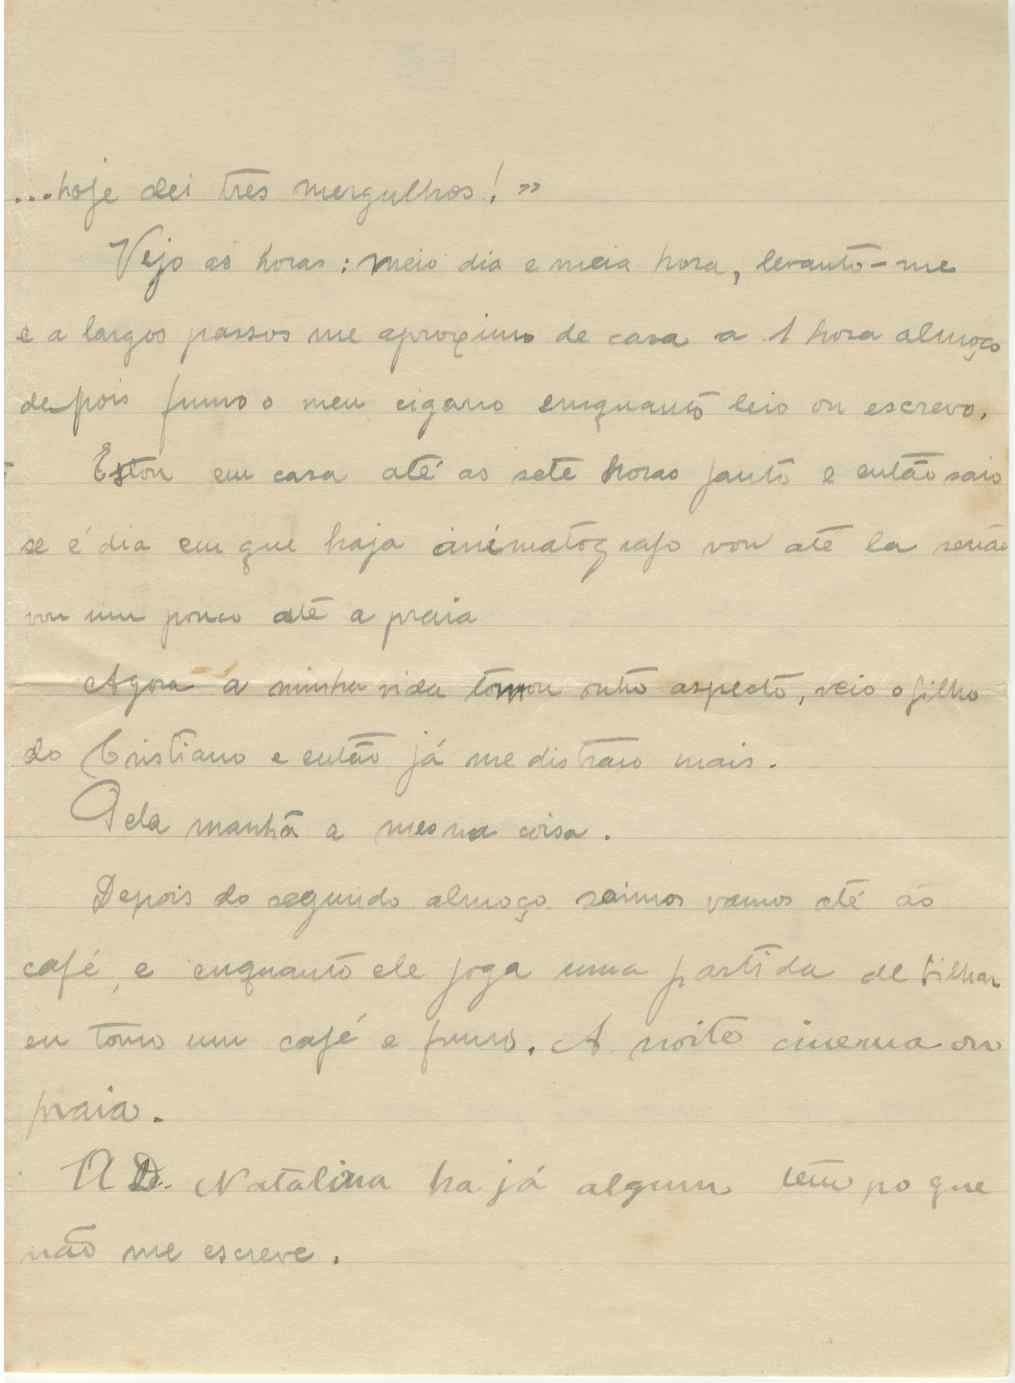 ...hoje dei tres mergulhos! »
Vejo as horas: meio dia e meia hora, levanto-me
e a largos passos me aproximo de casa a 1 hora almoço
depois fumo o meu cigarro emquanto leio ou escrevo.
Estou em casa até as sete horas janto e então saio
se é dia em que haja animatógrafo vou até la senão
vou um pouco até a praia
Agora a minha vida tomou outro aspecto, veio o filho
do Cristiano e então já me distraio mais.
Pela manhã a mesma coisa.
Depois do segundo almoço saimos vamos até ao
café, e enquanto ele joga uma partida de bilhar
eu tomo um café e fumo. A noite cinema ou
praia.
A D. Natalina ha já algum tempo que
não me escreve.